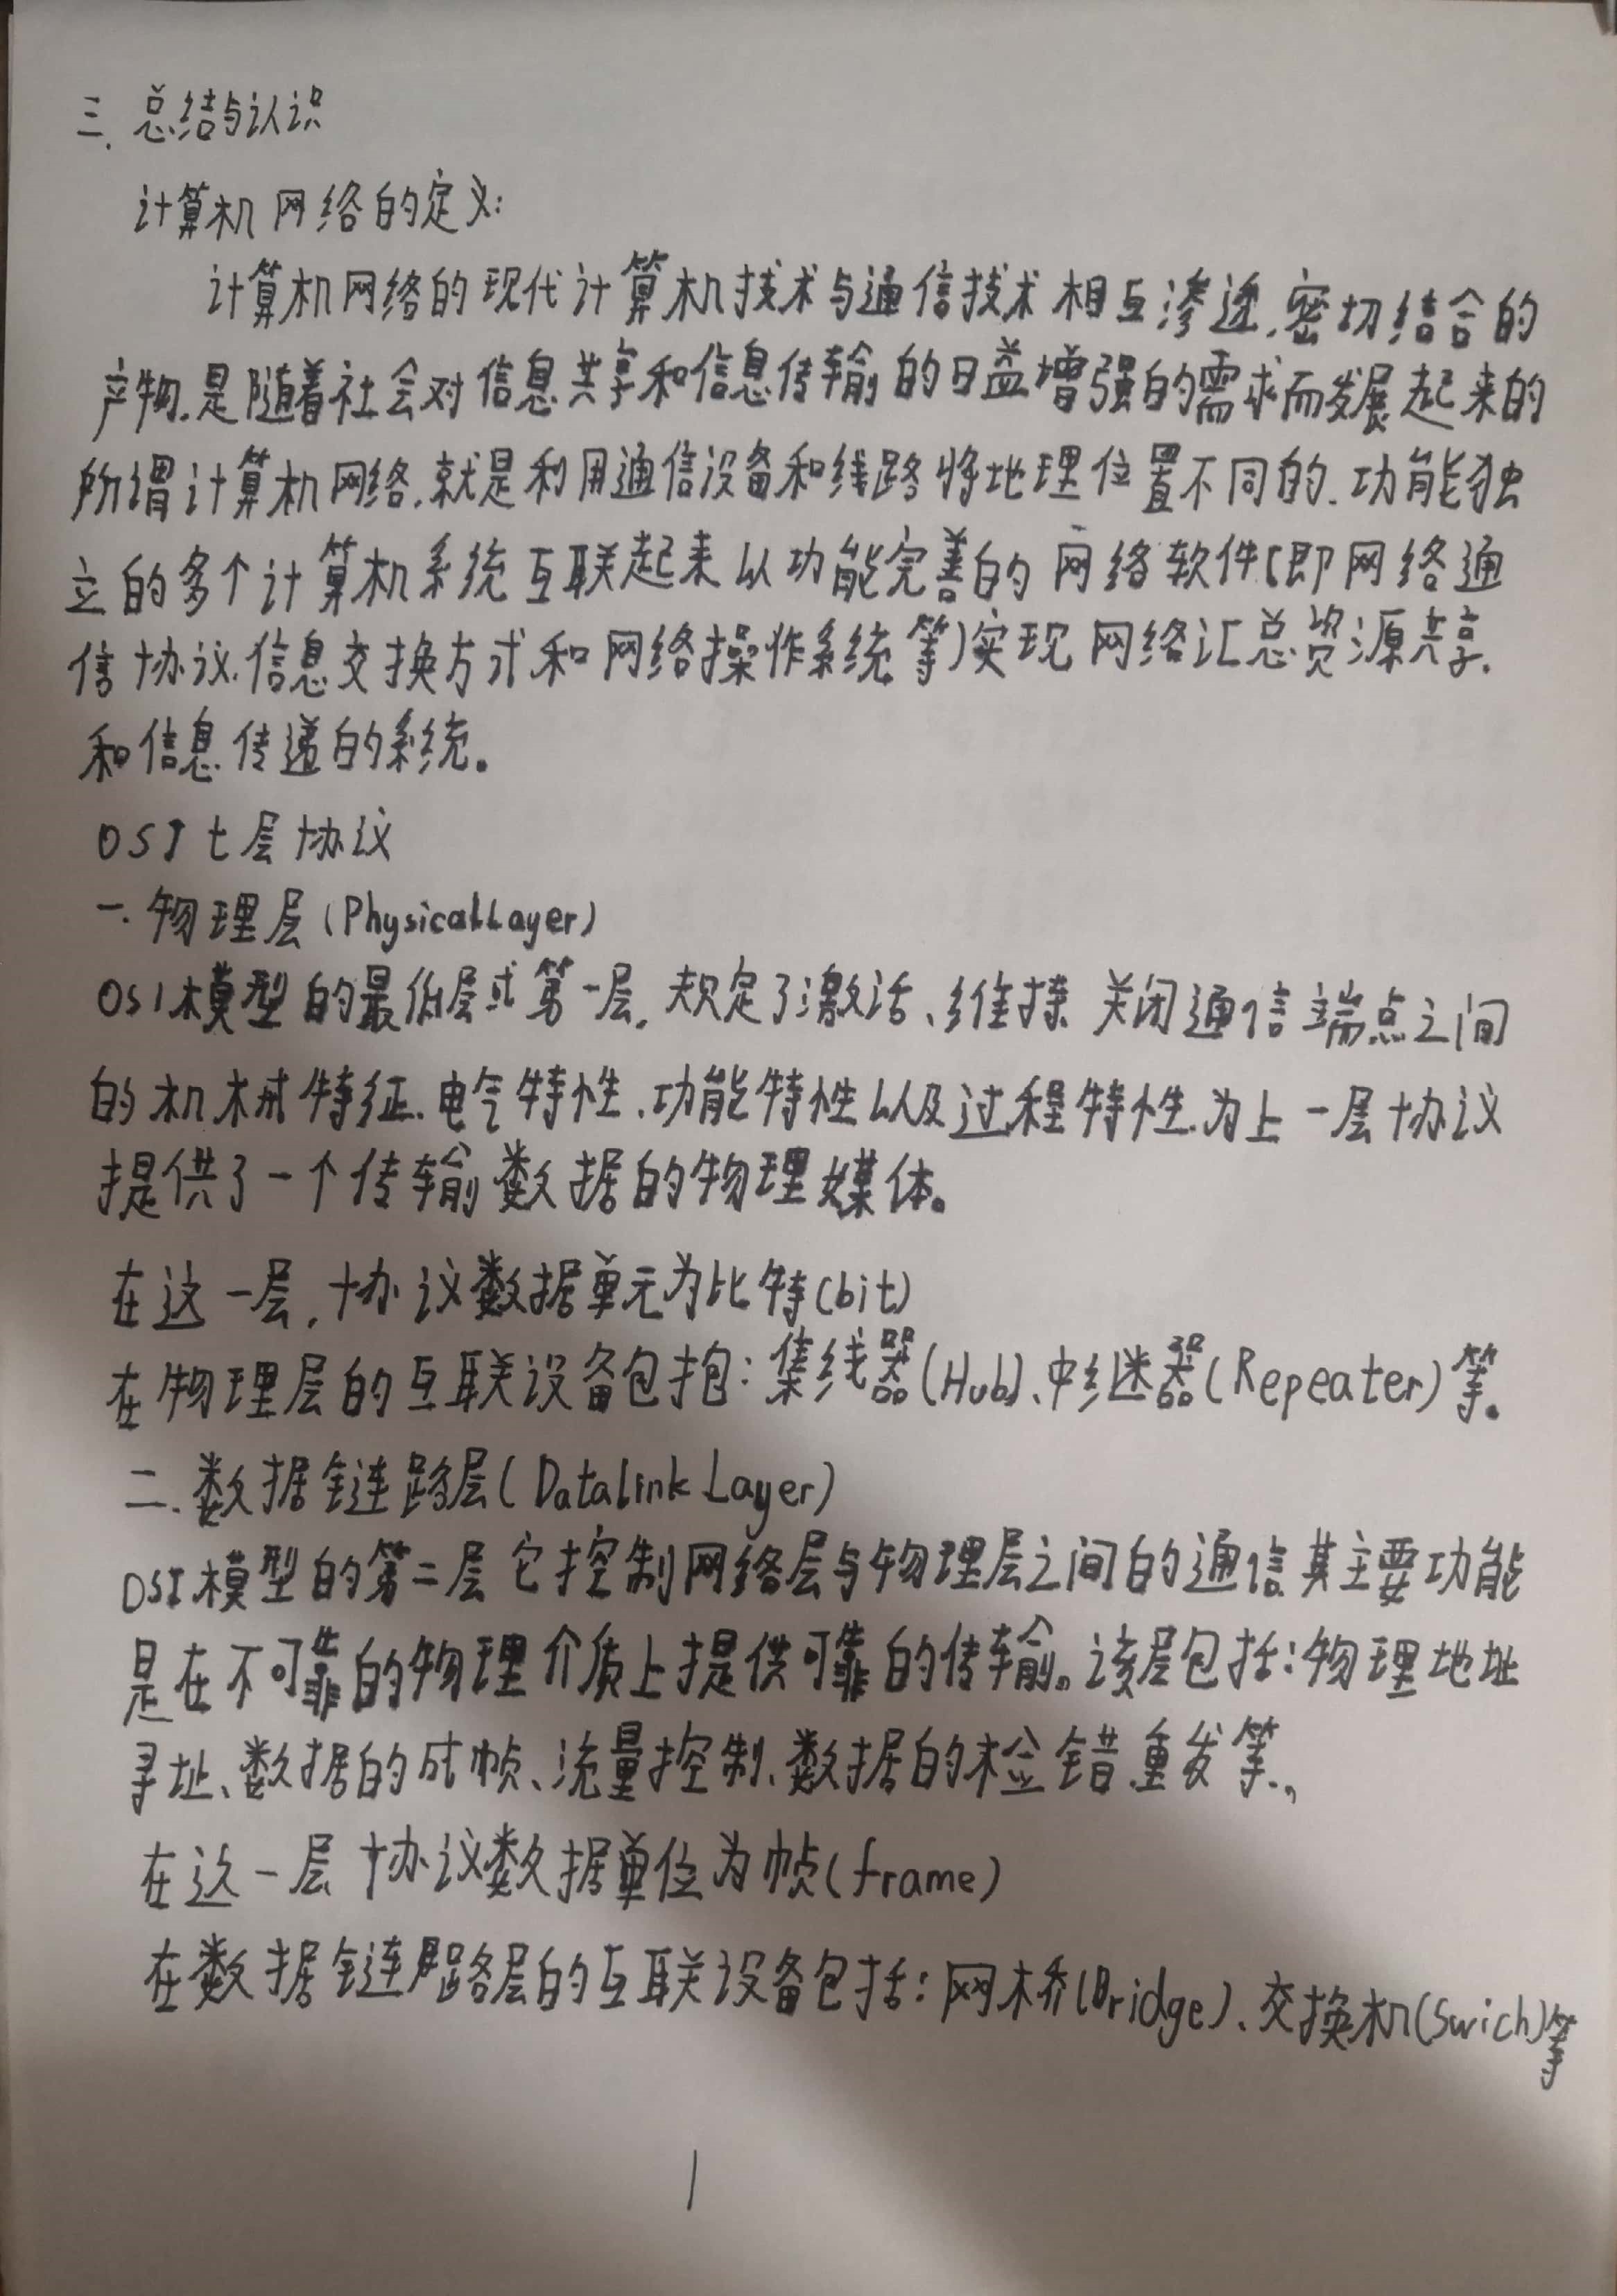 三、总结与认识
计算机网络的定义:
计算机网络的现代计算机技术与通信技术相互渗透,密切结合的
产物.是随着社会对信息共享和信息传输的日益增强的需求而发展起来的
所谓计算机网络.就是利用通信设备和线路将地理位置不同的.功能独
立的多个计算机系统互联起来以功能完善的网络软件(即网络通
信协议.信息交换方式和网络操作系统等)实现网络汇总资源共享.
和信息传递的系统。
OSI七层协议
一.物理层(PhysicalLayer)
OSI模型的最低层或第一层,规定了激活、维持 关闭通信端点之间
的机械特征.电气特性.功能特性以及过程特性.为上一层协议
提供了一个传输数据的物理媒体。
在这一层,协议数据单元为比特(bit)
在物理层的互联设备包抱:集线器(Hub)、中继器(Repeater)等。
二.数据链路层(Datalink Layer)
OSI模型的第二层它控制网络层与物理层之间的通信其主要功能
是在不可靠的物理介质上提供可靠的传输。该层包括:物理地址
寻址、数据的成帧、流量控制、数据的检错.重发等.,
在这一层协议数据单位为帧(frame)
在数据链路层的互联设备包括:网桥(Bridge)、交换机(Swich)等
1